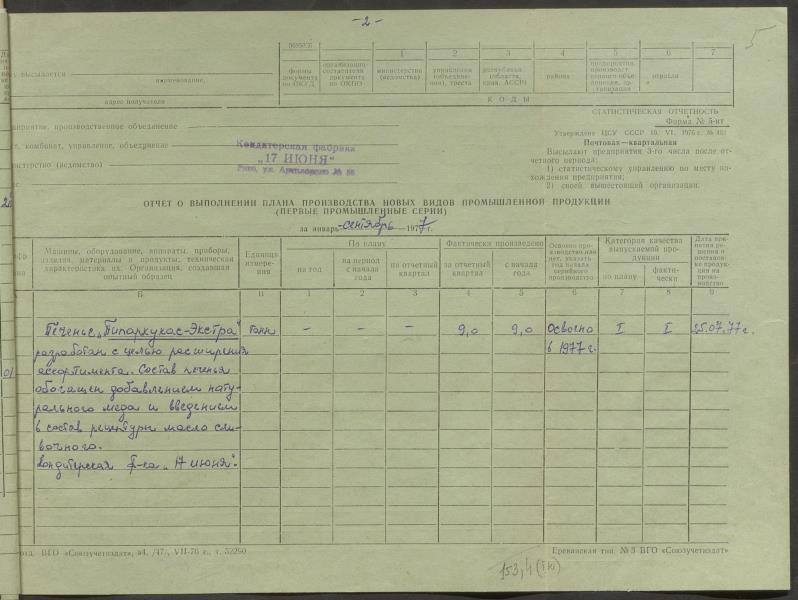 -2-
5
1 2 3 4 5 6 7
у высылается
наименование,
формы документа по ОКУД
организации-составителя документа по ОКПО
министерства (ведомства)
управления (объединения), треста
республики (области, края, АССР)
района
отрасли
адрес получателя
КОДЫ
СТАТИСТИЧЕСКАЯ ОТЧЕТНОСТЬ
Форма № 5-нт
Утверждена ЦСУ СССР 10. VI. 1976 г. №
Почтовая—квартальная
Высылают предприятия 3-го числа после отчетного периода:
1) статистическому управлению по месту нахождения предприятия;
2) своей вышестоящей организации.
дприятие, производственное объединение
, комбинат, управление, объединение
истерство (ведомство)
Кондитерская фабрика
„17 ИЮНЯ"
ОТЧЕТ О ВЫПОЛНЕНИИ ПЛАНА ПРОИЗВОДСТВА НОВЫХ ВИДОВ ПРОМЫШЛЕННОЙ ПРОДУКЦИИ
(ПЕРВЫЕ ПРОМЫШЛЕННЫЕ СЕРИИ)
за январь-сентябрь—1977 г.
Машины, оборудование, аппараты, приборы, изделия, материалы и продукты; техническая характеристика их. Организация, создавшая опытный образец
Единица измерения
По плану
на год
на период с начала года
на отчетный квартал
Фактически произведено
за отчетный квартал
с начала года
Освоено производство или нет, указать год начала серийного производства
Категория качества выпускаемой продукции
по плану
фактически
Дата принятия решения о постановке продукции на производство
Б В 1 2 3 4 5 6 7 8 9
Печенье „Пипаркукас-Экстра" тонн – – – 9,0 9,0 Освоено I I 25.07.77г.
разработан с целью расширения в 1977 г.
ассортимента. Состав печенья
обогащен добавлением нату-
рального меда и введением
в состав рецептуры масло сли-
вочного.
Кондитерская ф-ка „17 июня".
ВГО «Союзучетиздат», з4. /47/, VII-76 г., т. 52250
Ереванская тип. № 3 ВГО «Союзучетиздат»
153,4